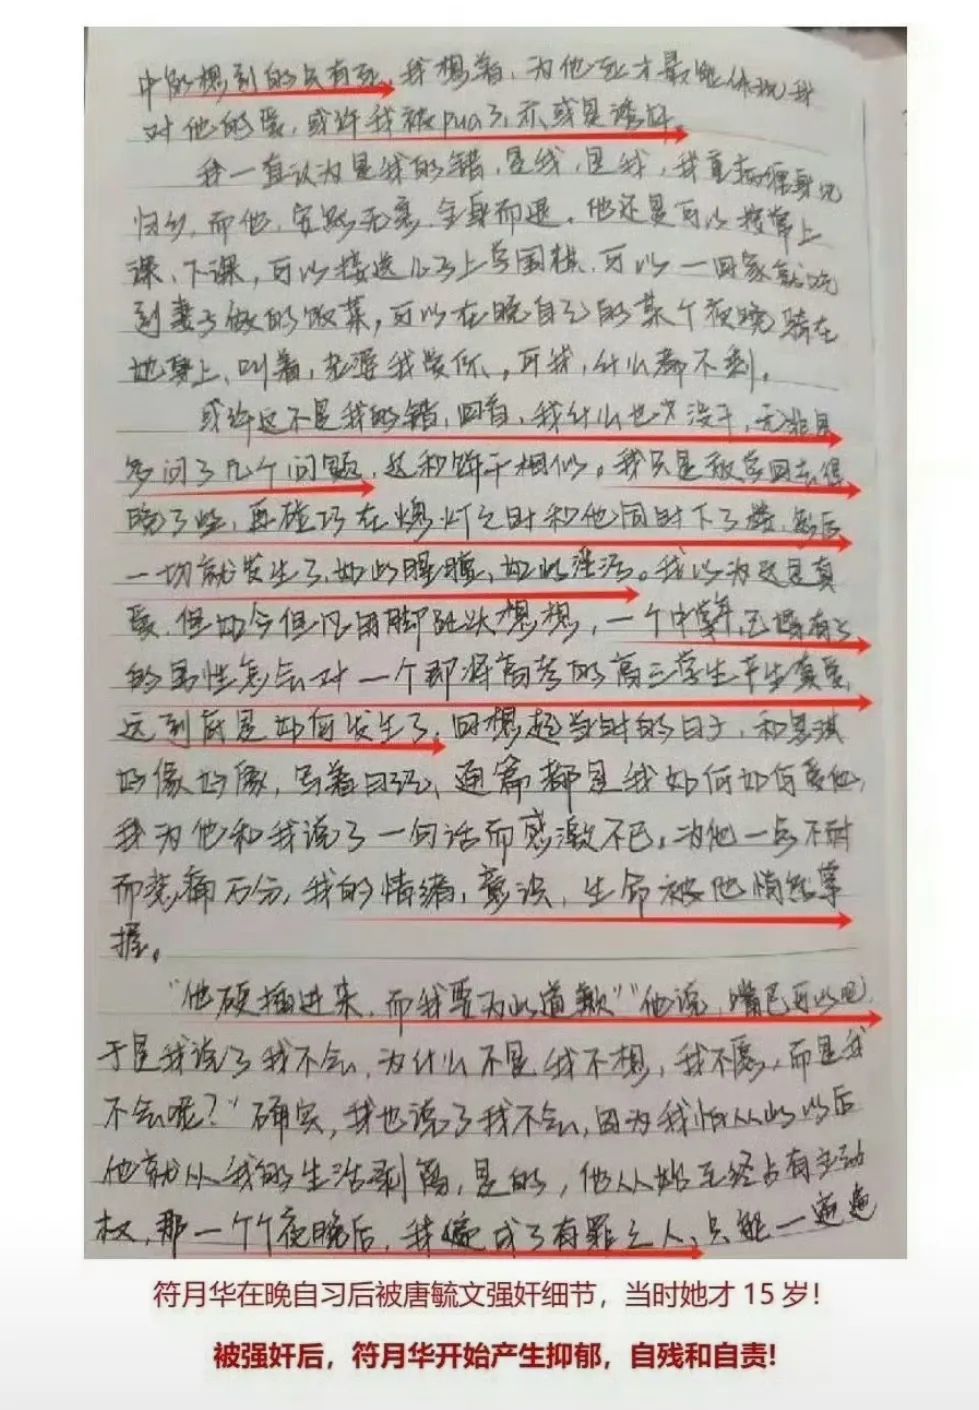 中的想到的只有死。我想着，为他死才最能体现我
对他的爱，或许我被pua了，亦或是诱奸。
我一直认为是我的错，是我，是我，我重病缠身
归乡，而他，安然无恙，全身而退。他还是可以接常上
课、下课，可以接送儿子上学围棋，可以一回家就吃
到妻子做的饭菜，可以在晚自习的某个夜晚骑在
她身上、叫着，老婆我爱你，可我，什么都不剩。
或许这不是我的错，回首，我什么也没干，无非是
多问了几个问题，这和饼干相似。我只是放学回去得
晚了些，再碰巧在熄灯之时和他同时下了楼，然后
一切就发生了，如此腥膻，如此淫污。我以为这是真
爱，但如今但凡用脚趾头想想，一个中年，已婚有子
的男性怎会对一个即将高考的高三学生产生真爱，
这到底是如何发生了，回想起当时的日子，和思琪
好像好像，写着日记，通篇都是我如何如何爱他，
我为他和我说了一句话而感激不已，为他一点不耐
而悲痛万分，我的情绪，意识，生命被他悄然掌
握。
“他硬插进来，而我要为此道歉”“他说，嘴巴可以吧，
于是我说了我不会，为什么不是我不想，我不愿，而是我
不会呢？”确实，我也说了我不会，因为我怕从此以后
他就从我的生活剥离，是的，他从始至终占有主动
权，那一个个夜晚后，我便成了有罪之人，只能一遍遍
符月华在晚自习后被唐毓文强奸细节，当时她才 15 岁！
被强奸后，符月华开始产生抑郁，自残和自责！